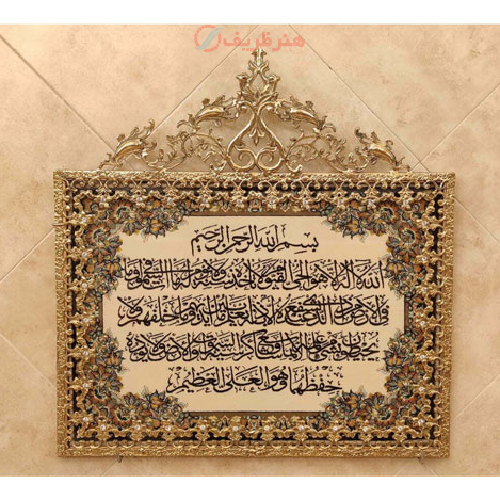 هنر ظریف
بسم الله الرحمن الرحيم
الله لا إله إلا هو الحي القيوم لا تأخذه سنة ولا نوم له ما في السموات وما
في الأرض من ذا الذي يشفع عنده إلا بإذنه يعلم ما بين أيديهم وما خلفهم ولا
يحيطون بشيء من علمه إلا بما شاء وسع كرسيه السموات والأرض ولا يؤده
حفظهما وهو العلي العظيم